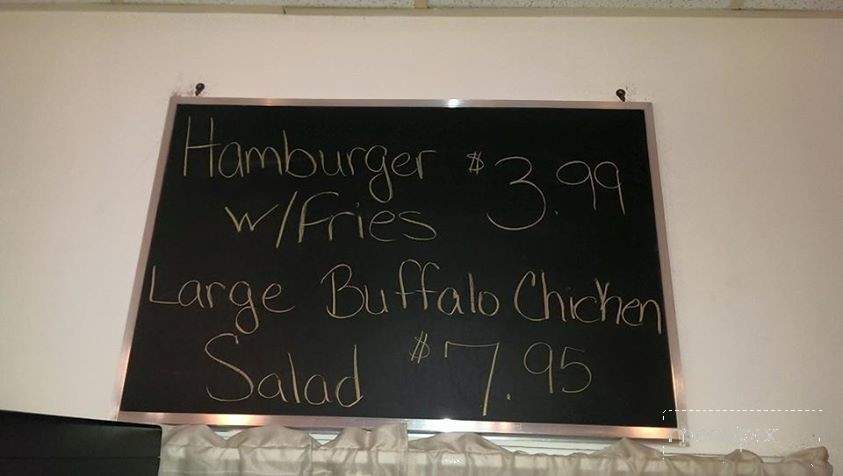 Hamburger $3.99
w/Fries
Large Buffalo Chicken
Salad $7.95